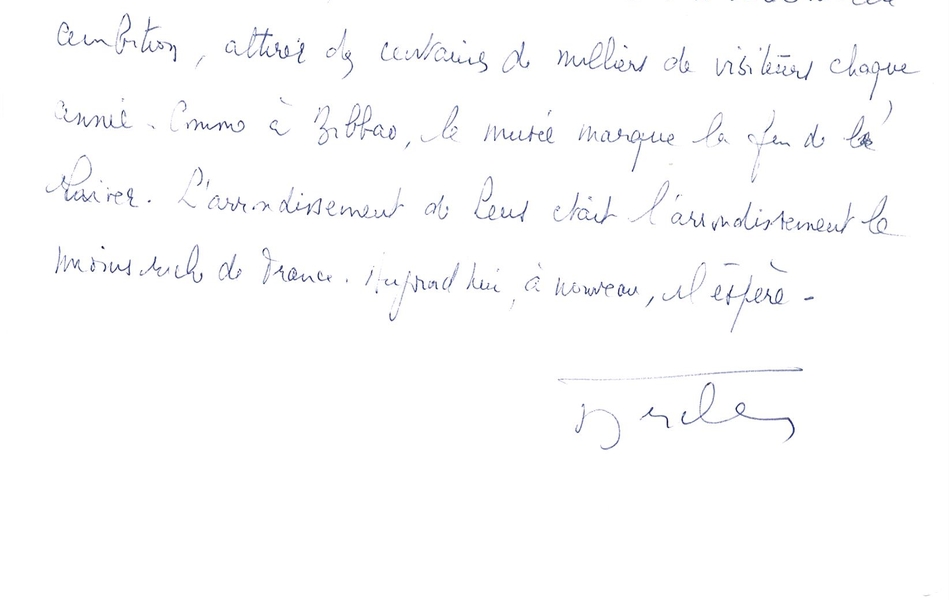 ambition, attirer des centaines de milliers de visiteurs chaque
année. Comme à Bilbao, le musée marque la fin de la
misère. L'arrondissement de Lens était l'arrondissement le
moins riche de France. Aujourd'hui, à nouveau, il espère.